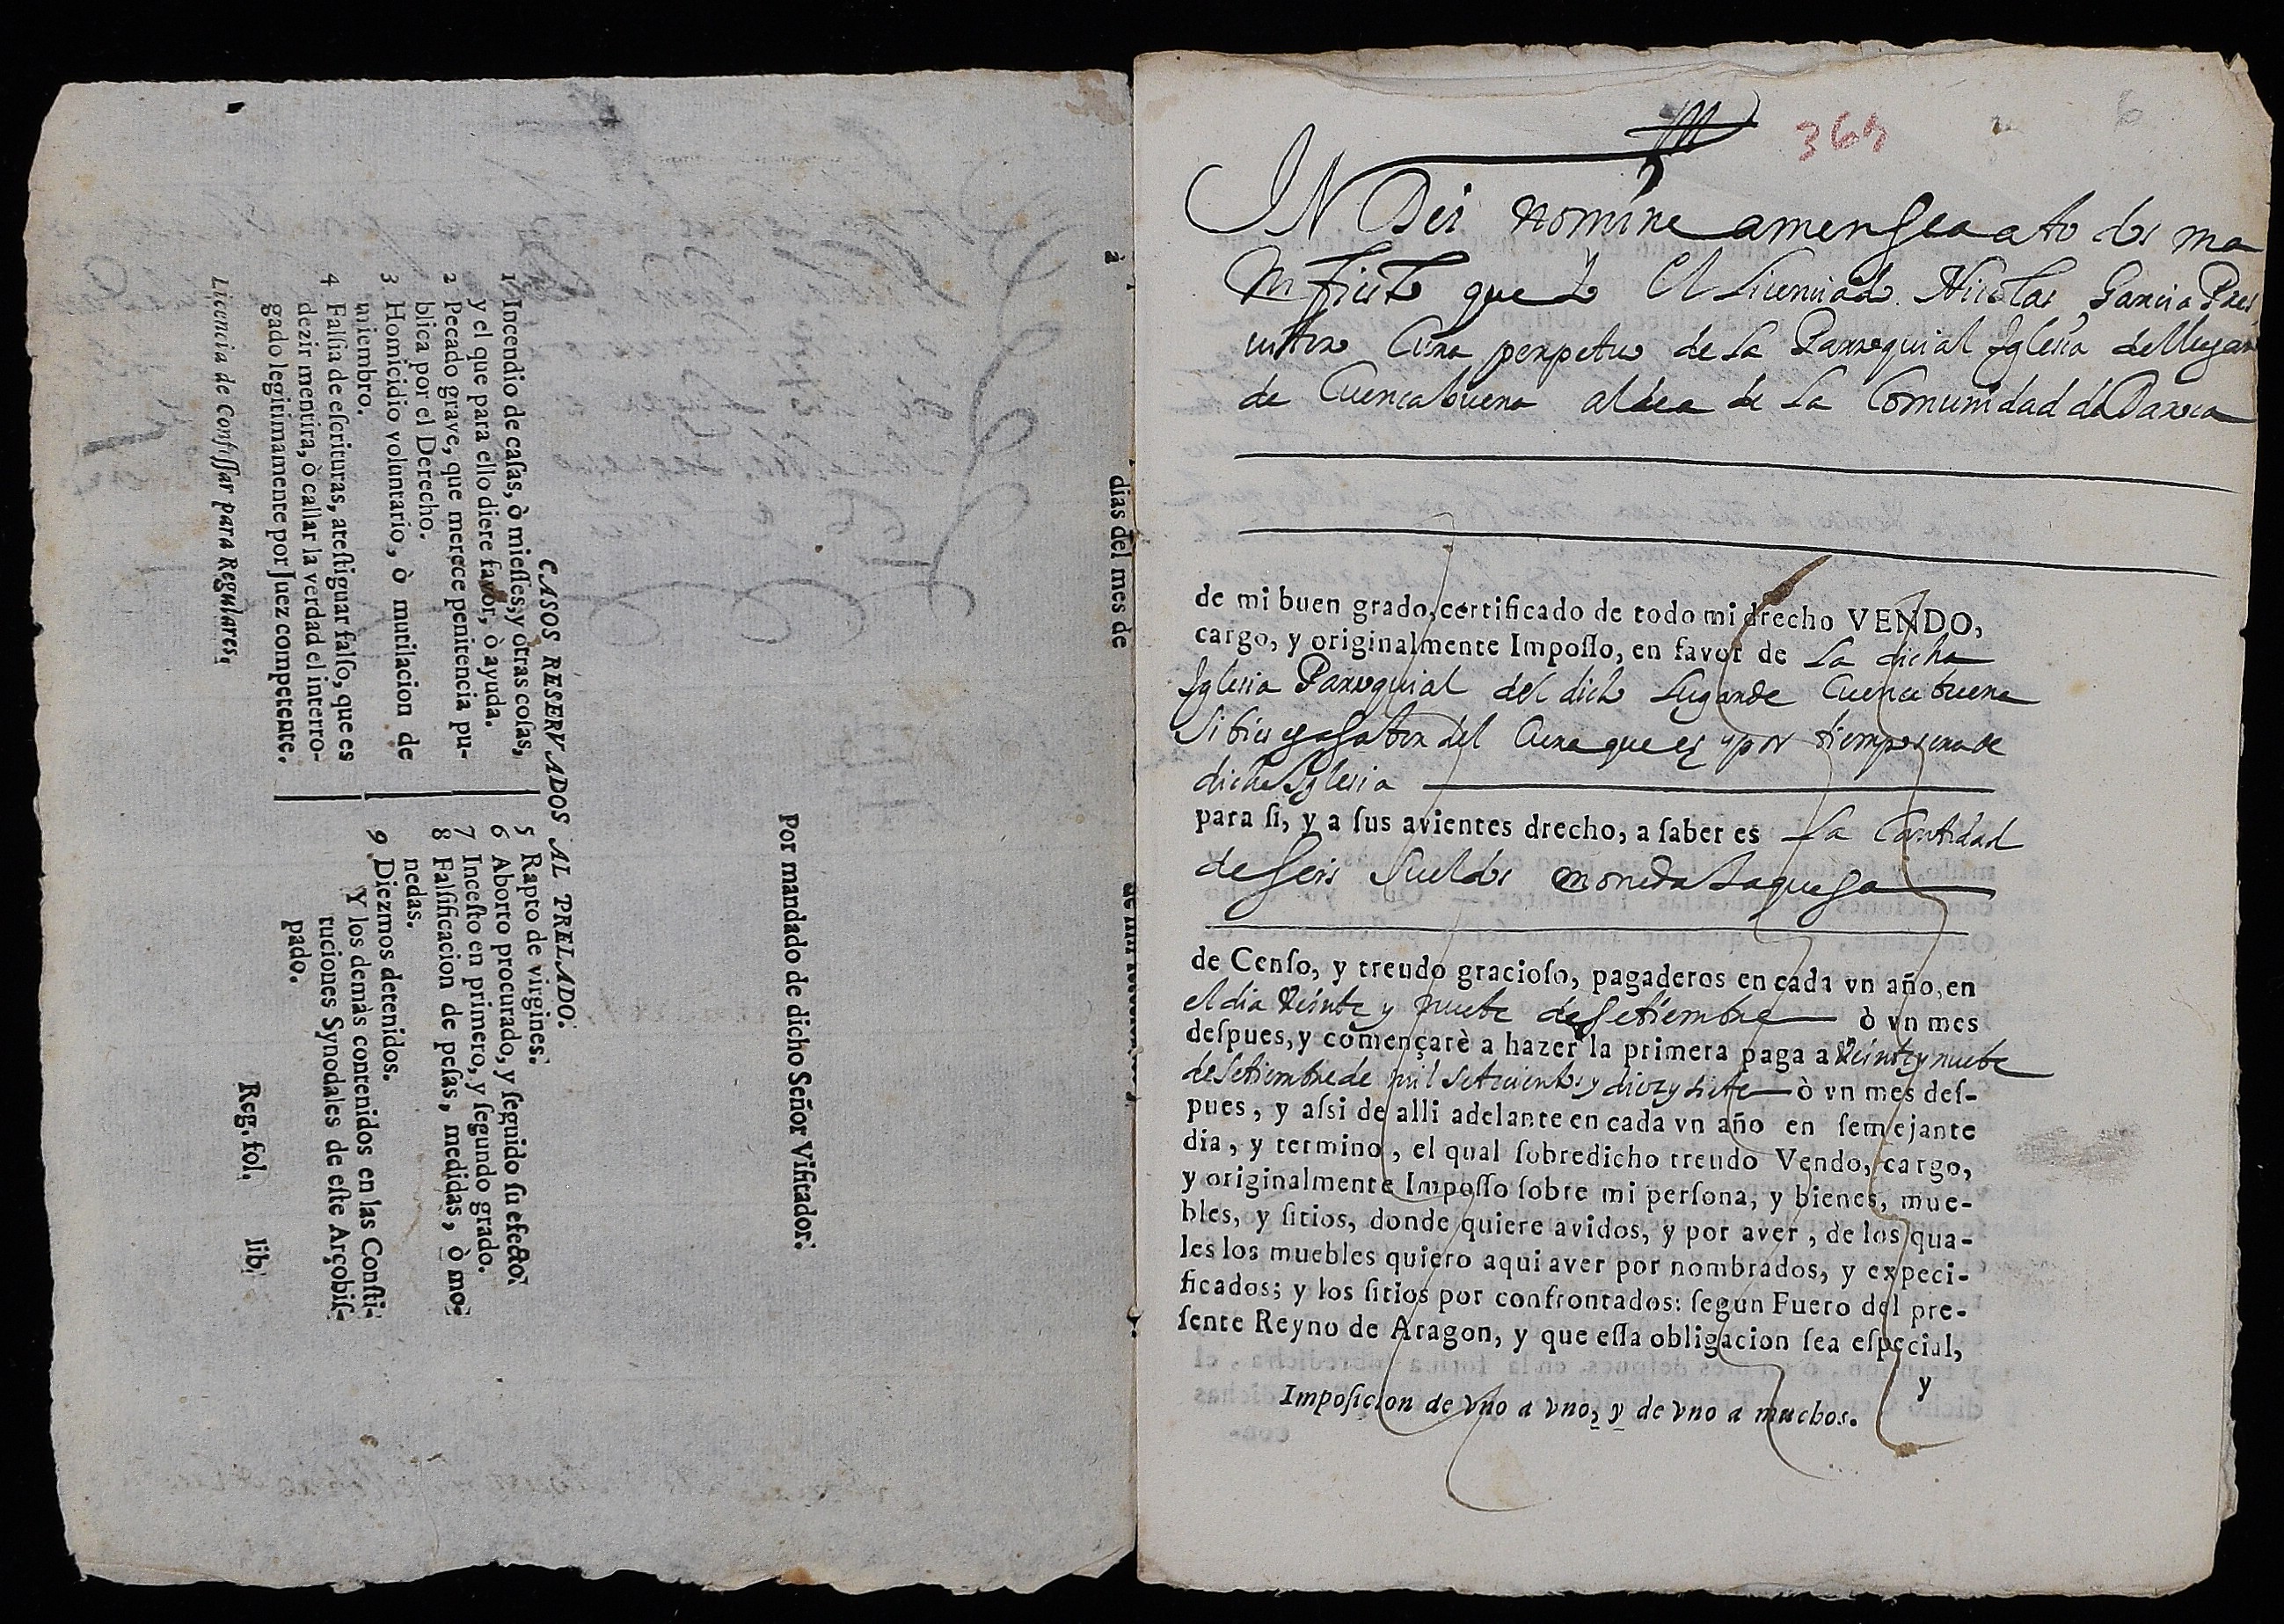 à
dias del mes de
Por mandado de dicho Señor Visitador.
CASOS RESERVADOS AL PRELADO.
1 Incendio de casas, ò miesses, y otras cosas,
y el que para ello diere favor, ò ayuda.
2 Pecado grave, que merece penitencia pu-
blica por el Derecho.
3 Homicidio voluntario, ò mutilacion de
miembro.
4 Falsia de escrituras, atestiguar falso, que es
dezir mentira, ò callar la verdad el interro-
gado legitimamente por Juez competente.
5 Rapto de virgines.
6 Aborto procurado, y seguido su efecto.
7 Incesto en primero, y segundo grado.
8 Falsificacion de pesas, medidas, ò mo-
nedas.
9 Diezmos detenidos.
Y los demàs contenidos en las Consti-
tuciones Synodales de este Arçobis-
pado.
Licencia de Confessar para Regulares.
Reg. fol. lib.
365
6
IN Dei nomine amen Sea a todos ma
nifiesto que Yo El Licenciado Nicolas Garcia Pres
vitero Cura perpetuo de la Parroquial Iglesia del lugar
de Cuencabuena aldea de la Comunidad de Daroca
de mi buen grado, certificado de todo mi drecho VENDO,
cargo, y originalmente Imposso, en favor de la dicha
Iglesia Parroquial del dicho Lugar de Cuencabuena
Cura que es y por tiempo sera de
dicha Iglesia
para si, y a sus avientes drecho, a saber es la Cantidad
de seis Sueldos moneda Jaquesa
de Censo, y treudo gracioso, pagaderos en cada vn año, en
el dia Veinte y nuebe de Setiembre ò vn mes
despues, y començarè a hazer la primera paga a Veinte y nuebe
de Setiembre de mil Setecientos y diez y siete ò vn mes des-
pues, y assi de alli adelante en cada vn año en semejante
dia, y termino, el qual sobredicho treudo Vendo, cargo,
y originalmente Imposso sobre mi persona, y bienes, mue-
bles, y sitios, donde quiere avidos, y por aver, de los qua-
les los muebles quiero aqui aver por nombrados, y expeci-
ficados; y los sitios por confrontados: segun Fuero del pre-
sente Reyno de Aragon, y que essa obligacion sea especial,
y
Imposicion de vno a vno, y de vno a muchos.